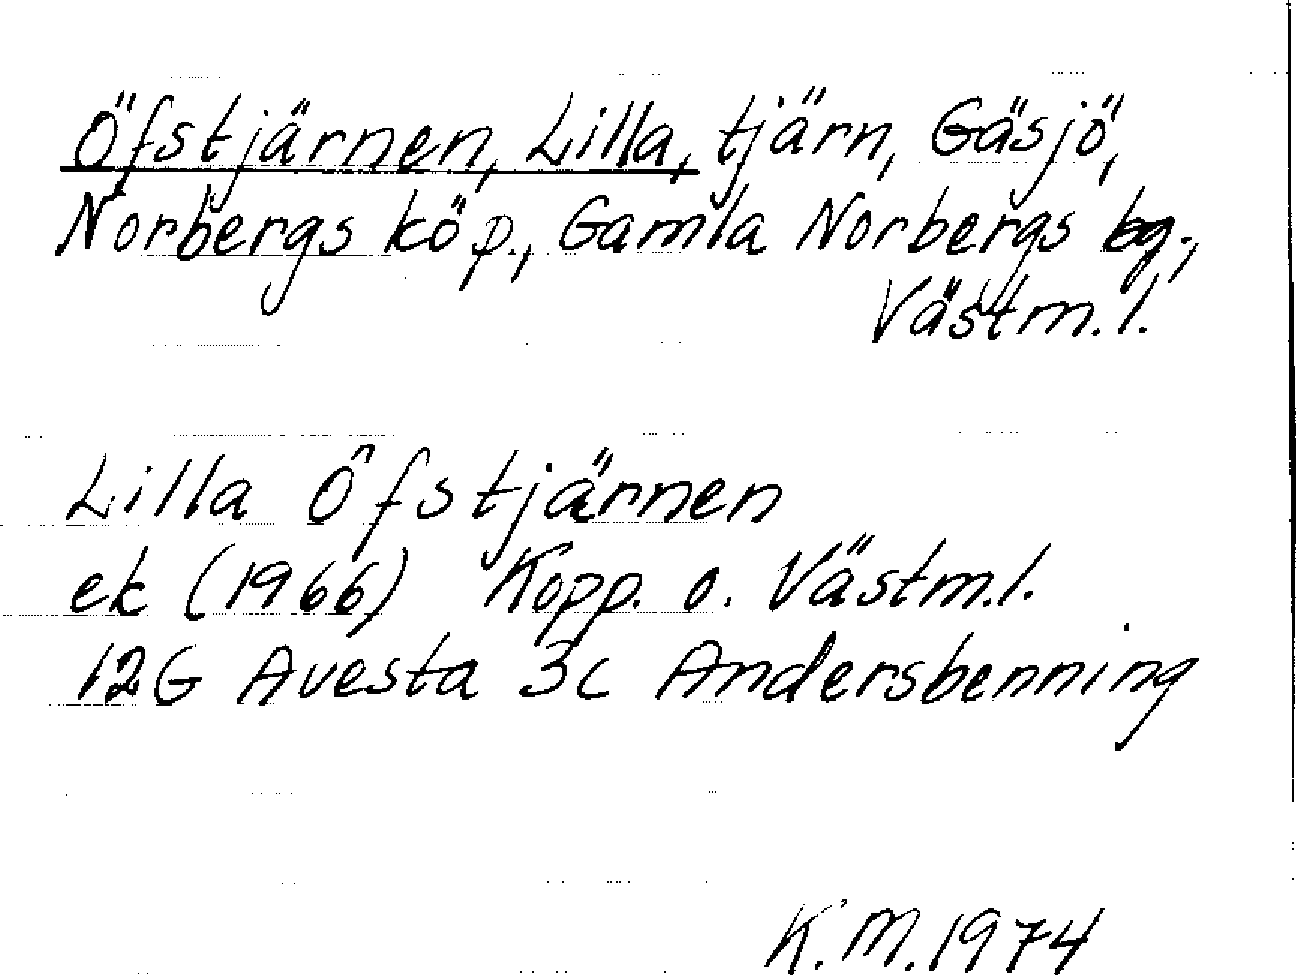 Öfstjärnen, Lilla, tjärn, Gäsjö,
Norbergs köp., Gamla Norbergs bg.,
Västm.l.
Lilla Öfstjärnen
ek (1966) Kopp. o. Västm.l.
12G Avesta 3c Andersbenning
K.M.1974